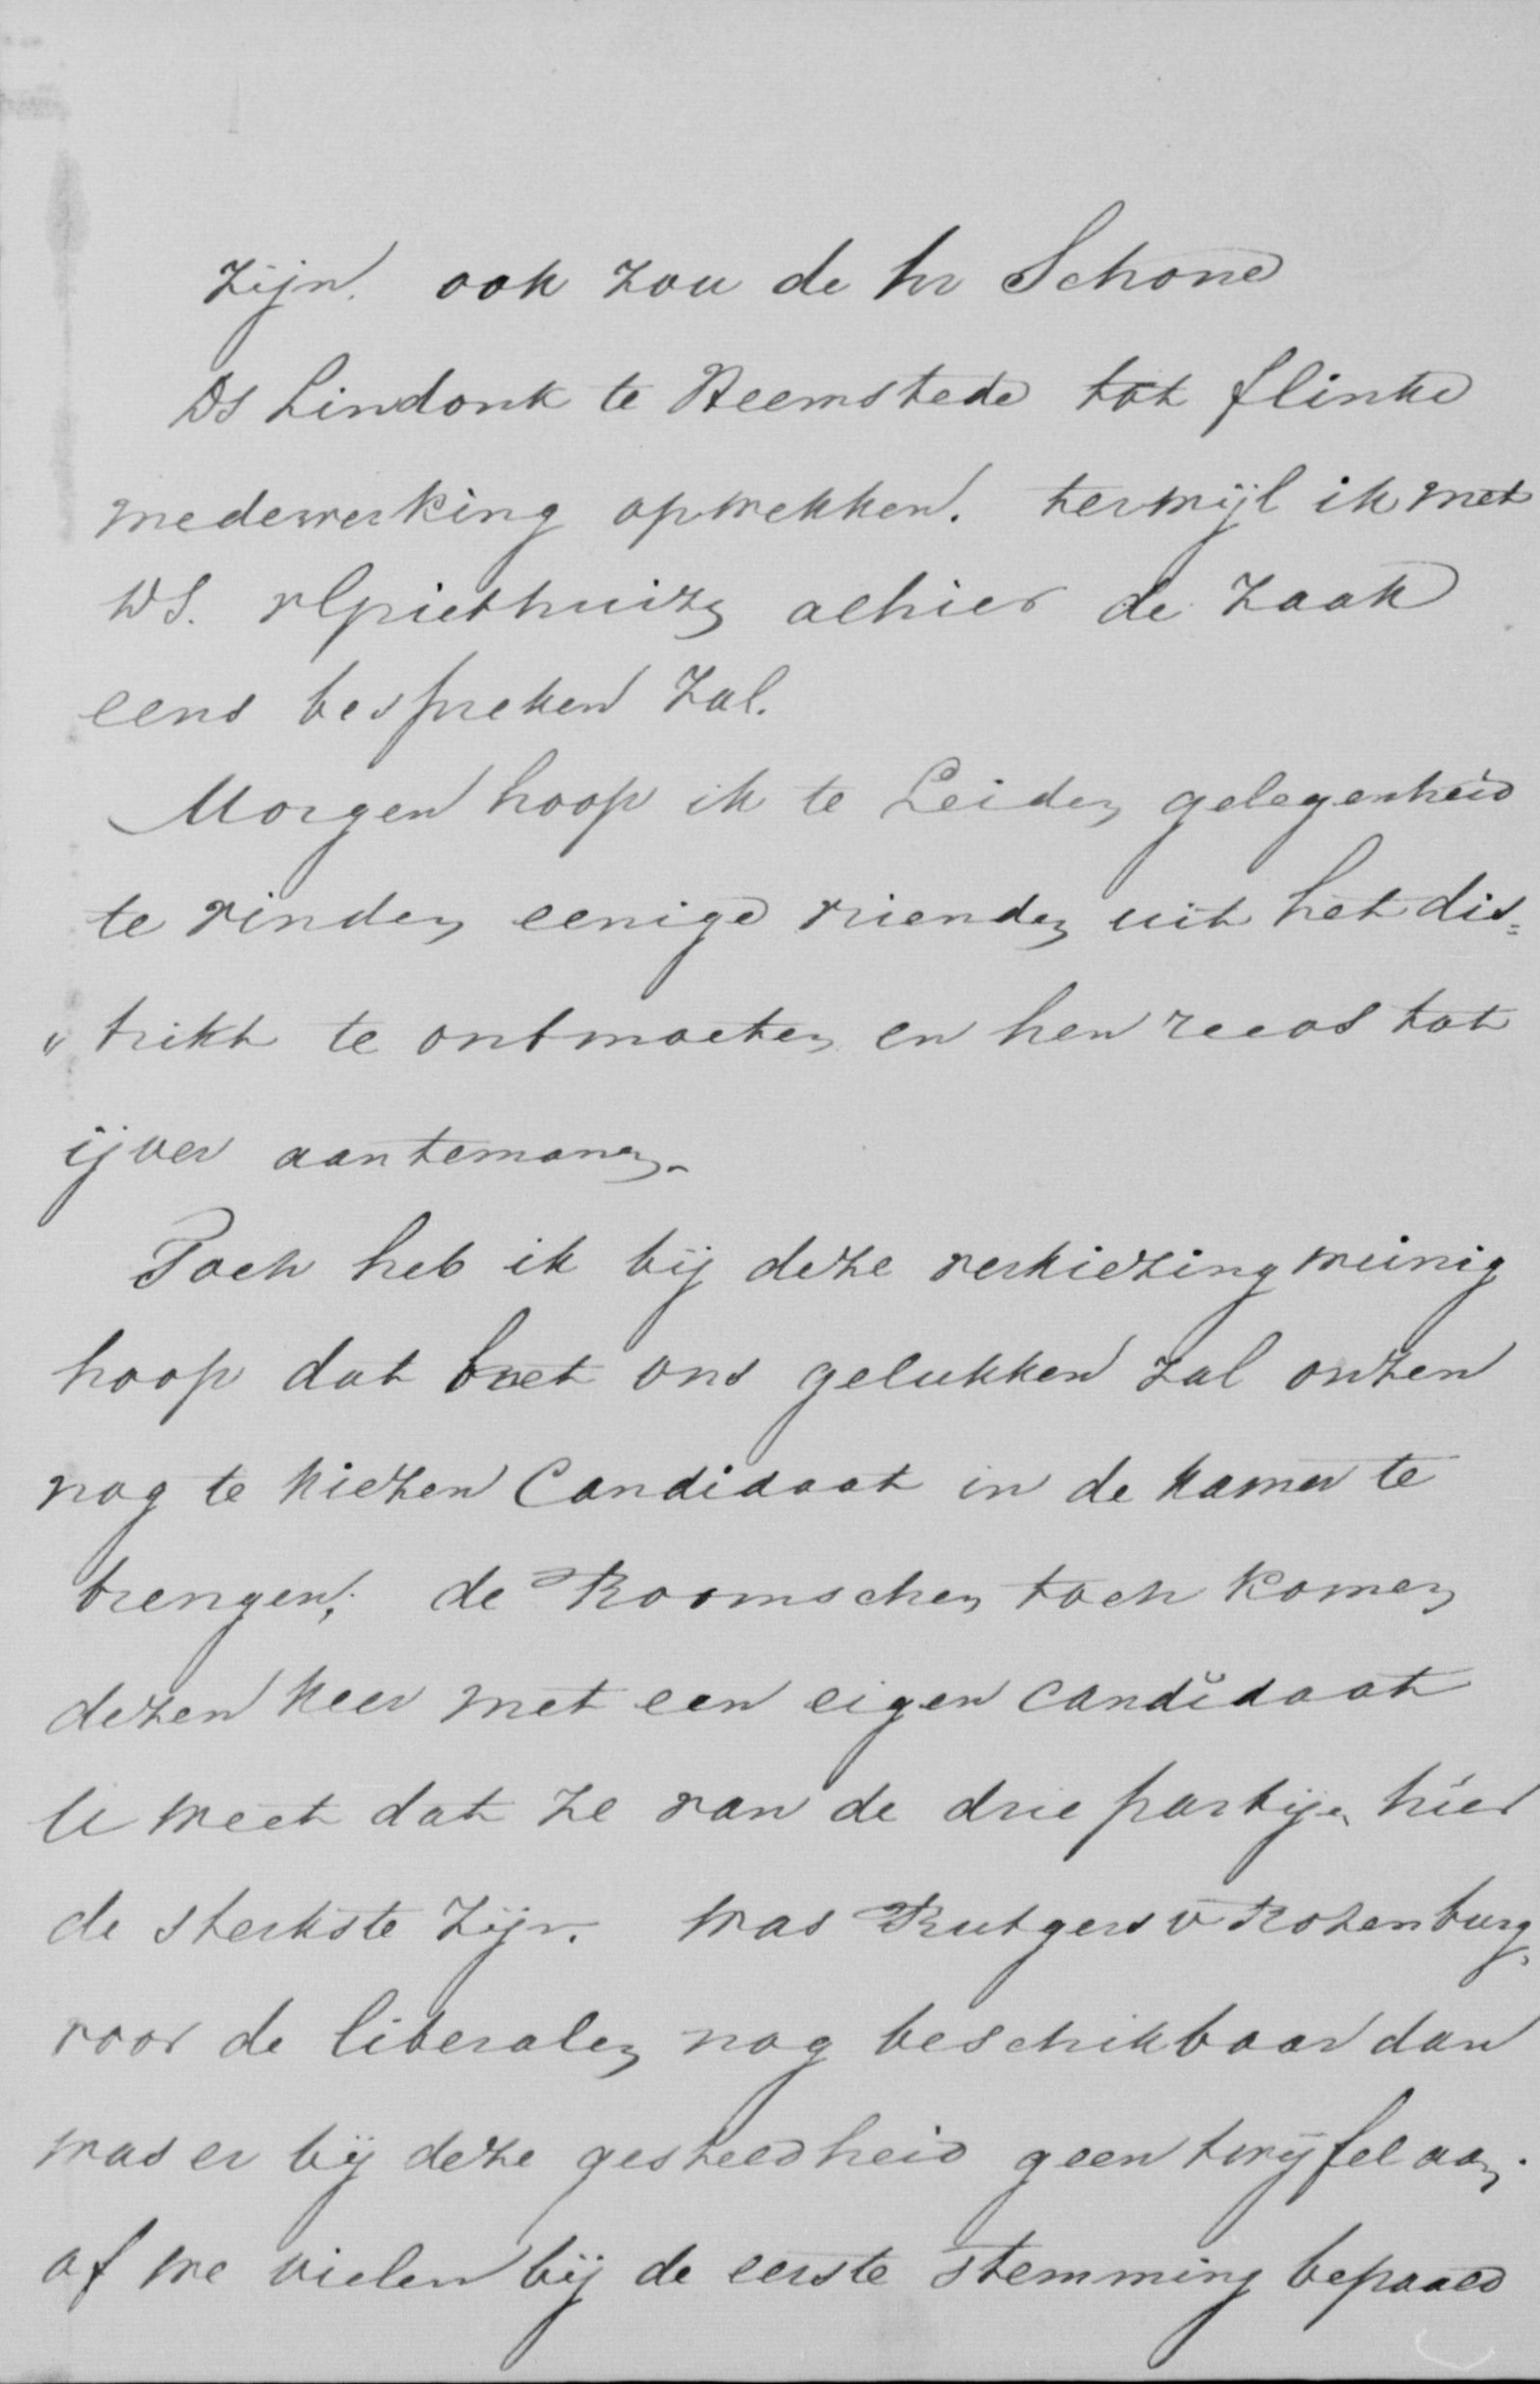 zijn. ook zou de hr Schone
Ds Lindonk te Heemstede tot flinke
medewerking opwekken. terwijl ik met
DS. alhier de zaak
eens bespreken zal.
Morgen hoop ik te Leiden gelegenheid
te vinden eenige vrienden uit het dis=
" trikt te ontmoeten en hen reeds tot
ijver aantemanen.
Toch heb ik bij deze verkiezing weinig
hoop dat het ons gelukken zal onzen
nog te kiezen Candidaat in de kamer te
brengen; de Roomschen toch komen
dezen keer met een eigen candidaat
U weet dat ze van de drie partijen hier
de sterkste zijn. was Rutgers v Rozenburg,
voor de liberalen nog beschikbaar dan
was er bij deze gesteldheid geen twijfel aan.
of we vielen bij de eerste stemming bepaald